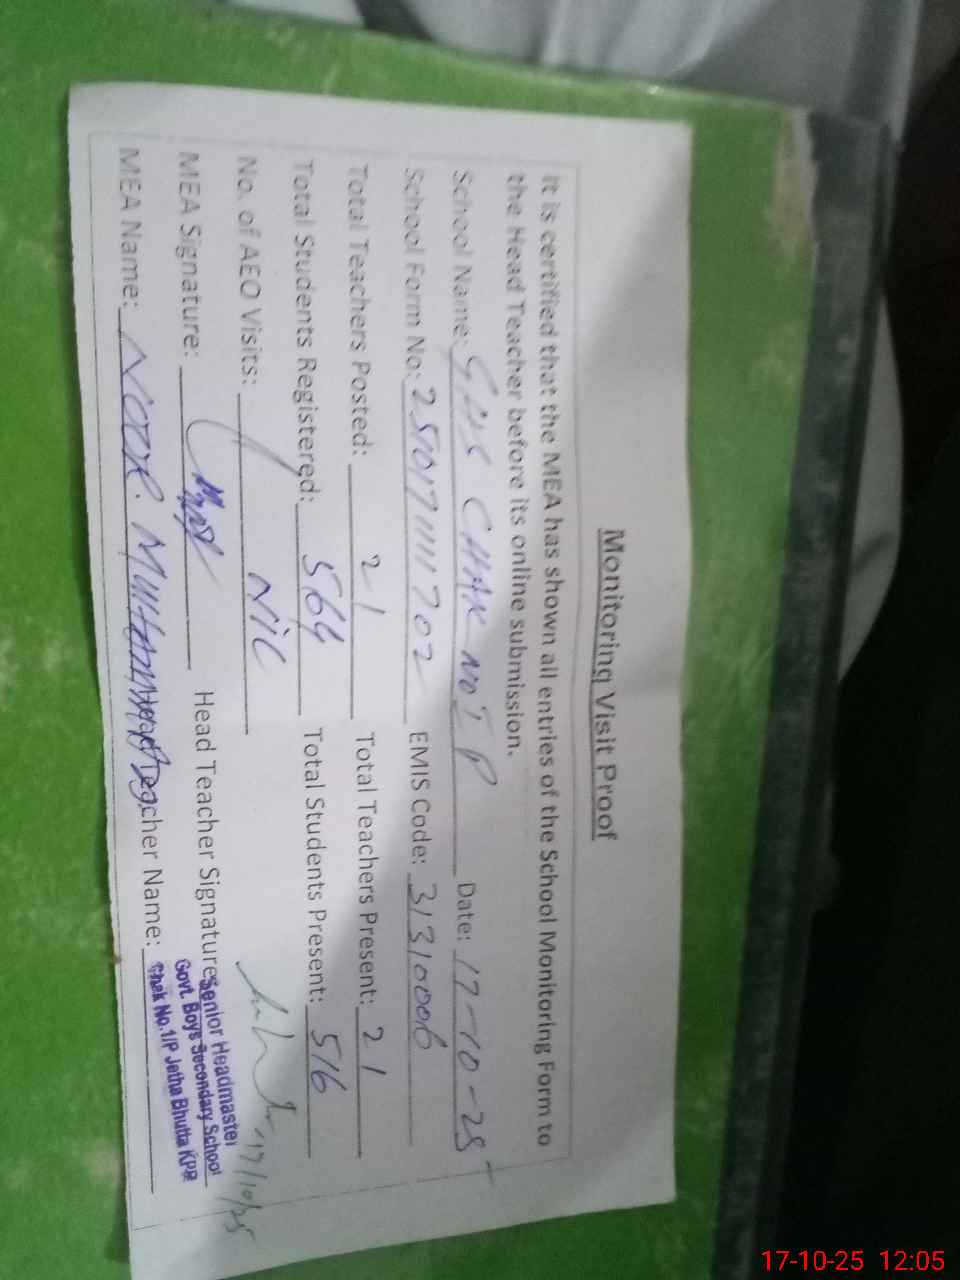 Monitoring Visit Proof
It is certified that the MEA has shown all entries of the School Monitoring Form to
the Head Teacher before its online submission.
School Name: GHS CHAK NO 1 P Date: 17-10-25
School Form No: EMIS Code: 31310006
Total Teachers Posted: 21 Total Teachers Present: 21
Total Students Registered: 564 Total Students Present: 516
No. of AEO Visits: NIL
MEA Signature: Head Teacher Signature: 17/10/25
Senior Headmaster
Govt. Boys Secondary School
Chak No.1/P Jetha Bhutta KPR
MEA Name: NOOR MUHAMMAD Teacher Name:
17-10-25 12:05